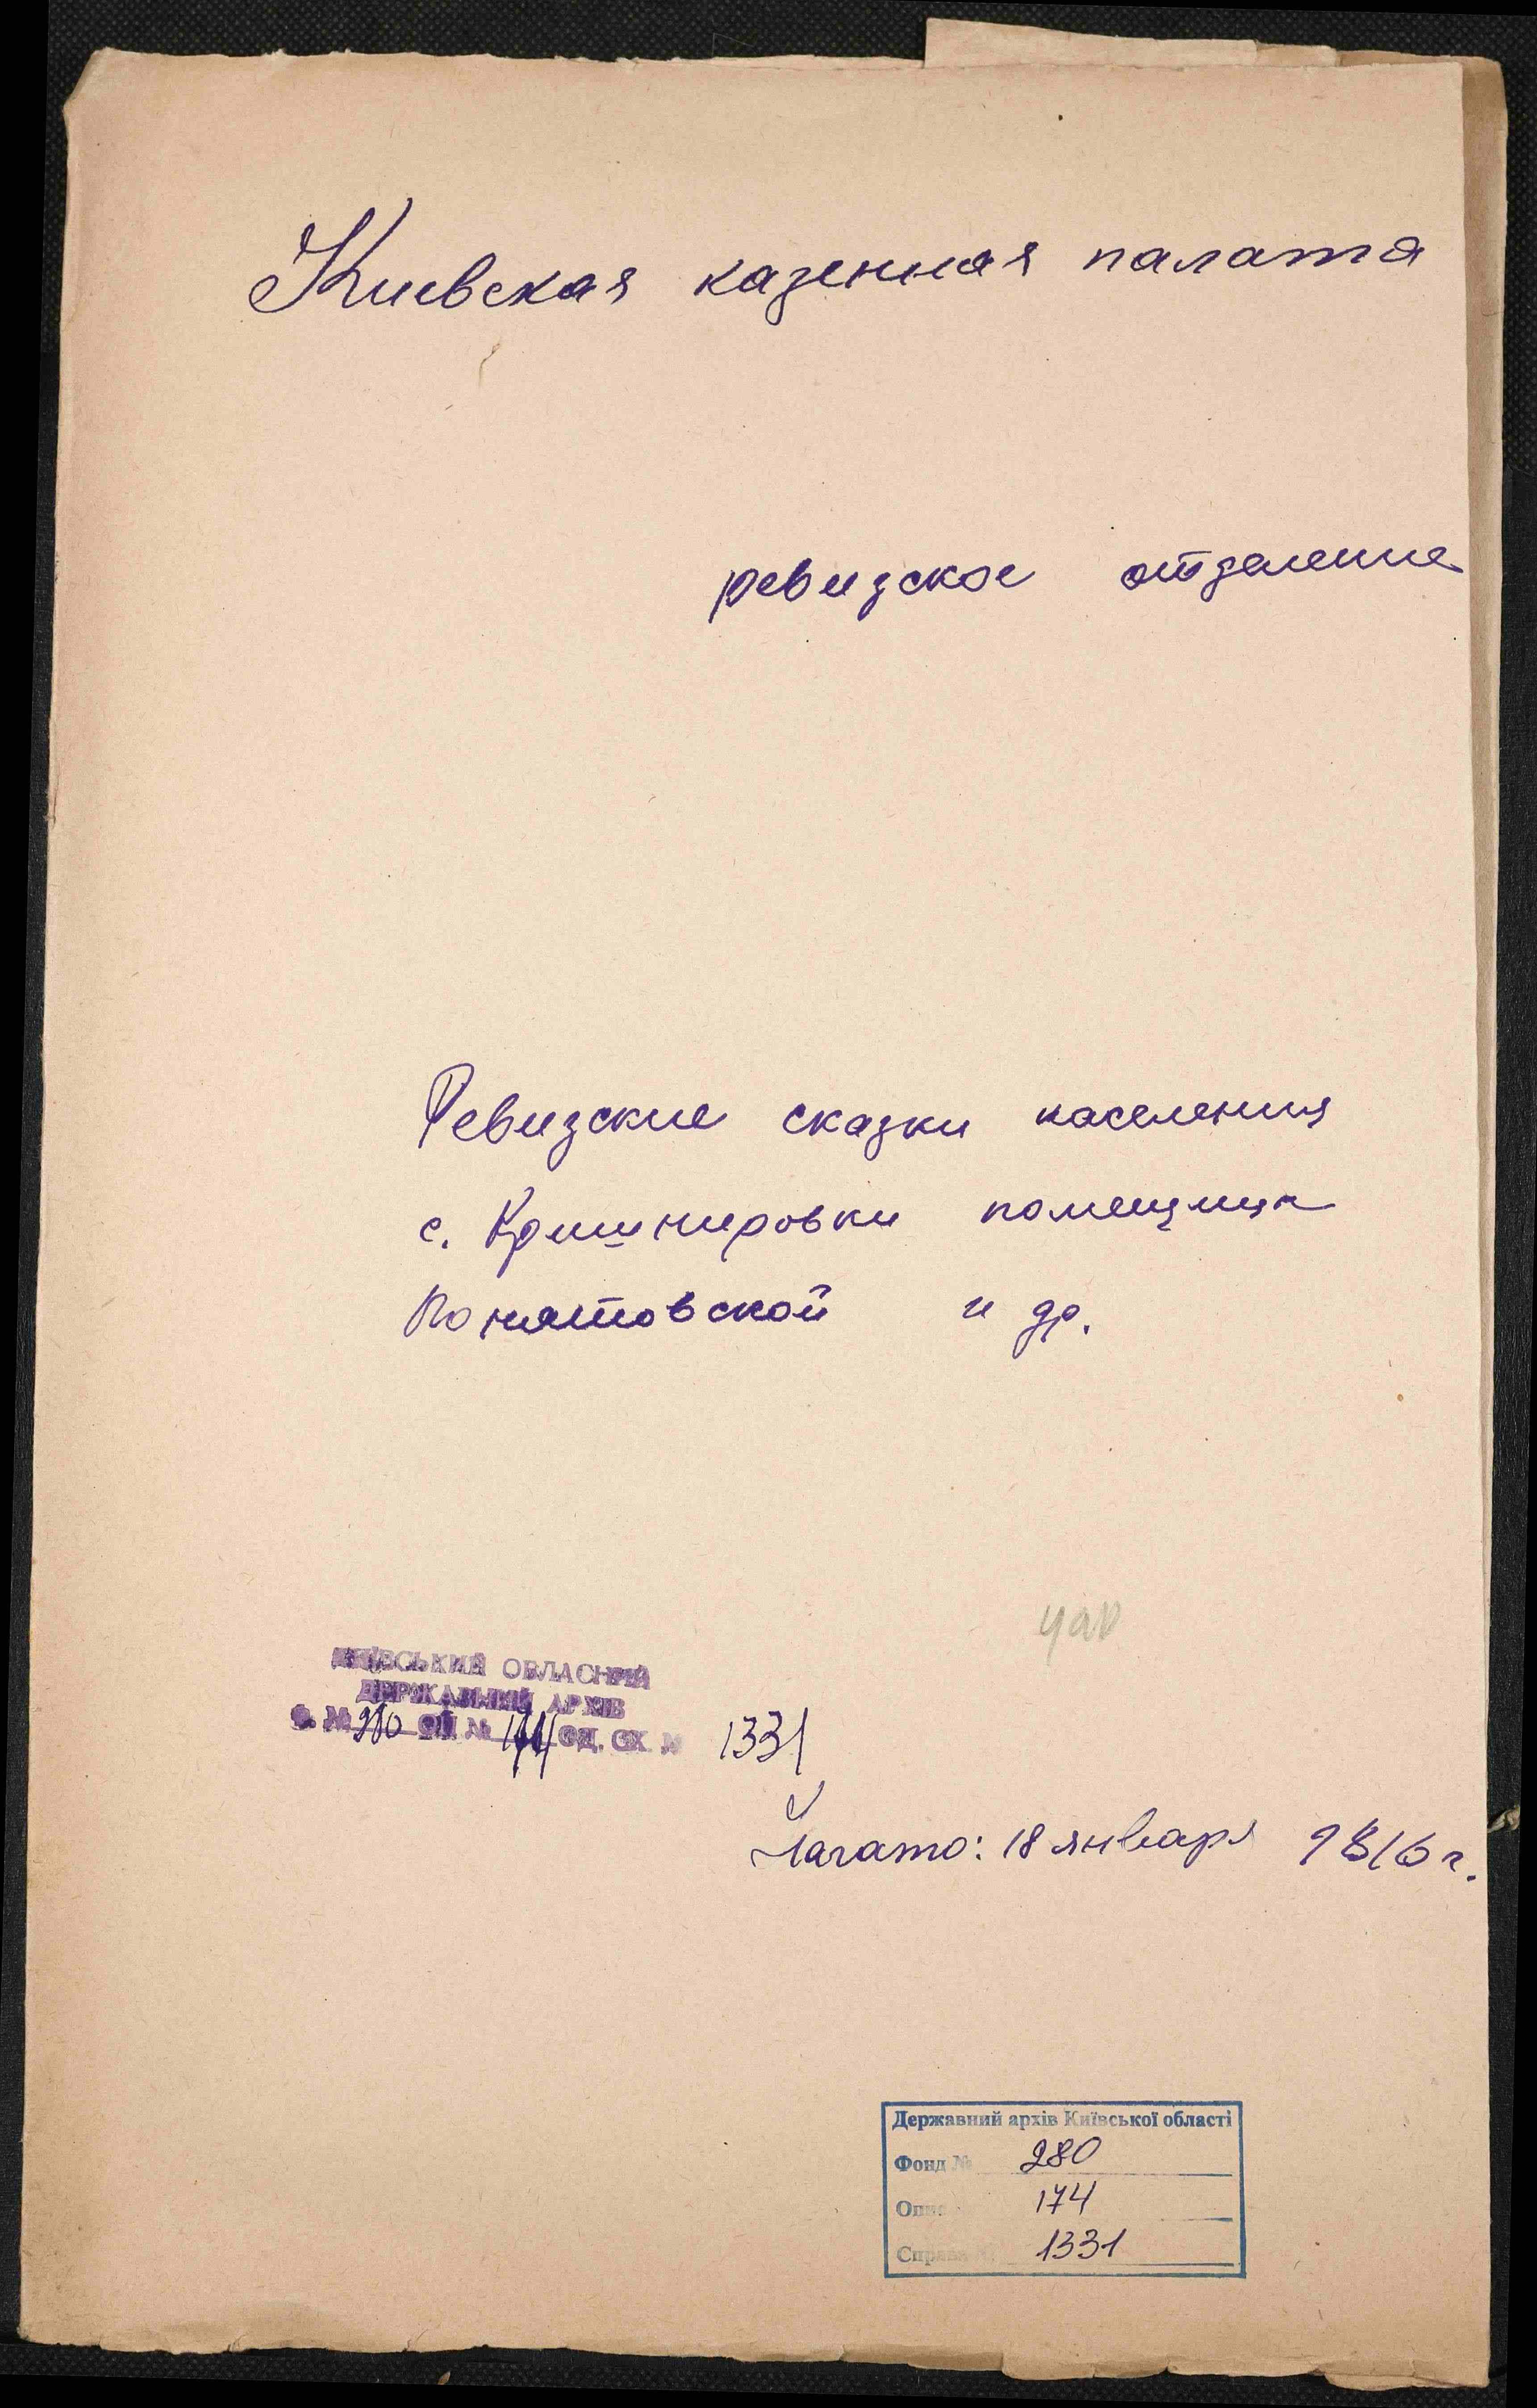 Киевская казенная палата
ревизское отделение
Ревизские сказки населения
с. Кришнировки помещицы
Понятовской и др.
КИЇВСЬКИЙ ОБЛАСНИЙ
ДЕРЖАВНИЙ АРХІВ
Ф. № 280 ОП № 174 ОД. СХ. № 1331
Начато: 18 января 1816 г.
Державний архів Київської області
Фонд № 280
Опис 174
Справа № 1331